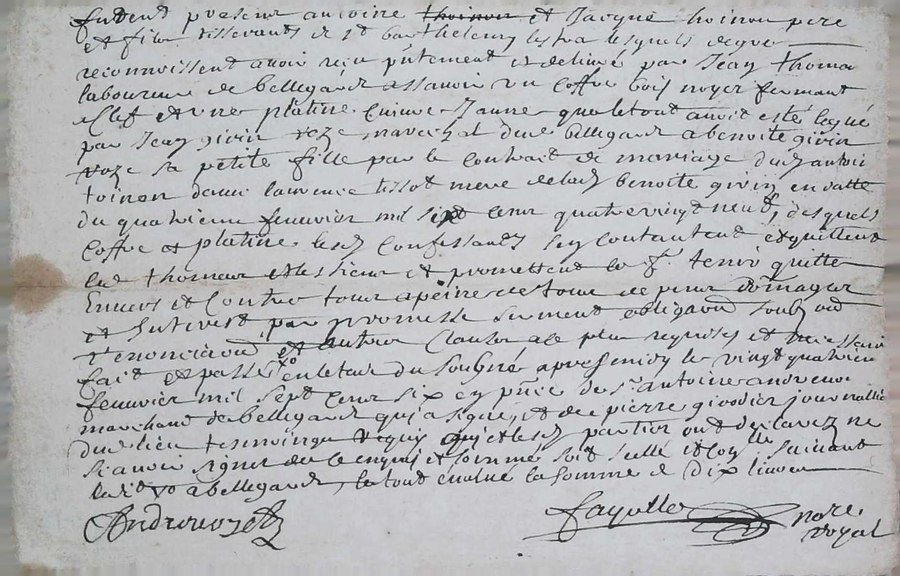 furent presens antoine thoinon et Jacque thoinon pere
et fils tisserants de St barthelemy lestra lesquels de gre
reconnoissent avoir reçu putement et delivré par Jean thoma
laboureur de bellegarde assavoir un coffre bois noyer fermant
a Clef et une platine Cuivre Jaune que le tout avoit esté legué
par Jean givin voze mareschal dud bellegarde a benoite givin
voze sa petite fille par le contrait de mariage dud antoine
toinon dame laurence tissot mere de lad benoite givin en datte
du quatrieme feuvrier mil six cent quatrevingt neuf, desquels
Coffre et platine lesd Confessants sen contantent et quittent
led thomas et les siens et promettent le f. tenir quitte
Envers et Contre tous a peine de tous depens domages
et Interest par promesse serment obligaon soubz
renonciaon et autres Clauses a le plus requises et necessaire
fait et passé en letude du soubzné apres midy le vingt quatrieme
feuvrier mil sept cent six en pnce de sr antoine
marchand de bellegarde qui a signé, et de pierre journallier
dud lieu tesmoings requis qui et lesd parties ont declarez ne
scavoir signer de ce enquis et sommé soit scellé et suivant
ledit a bellegarde, le tout evalué la somme de Dix livres
fayolle nore
royal